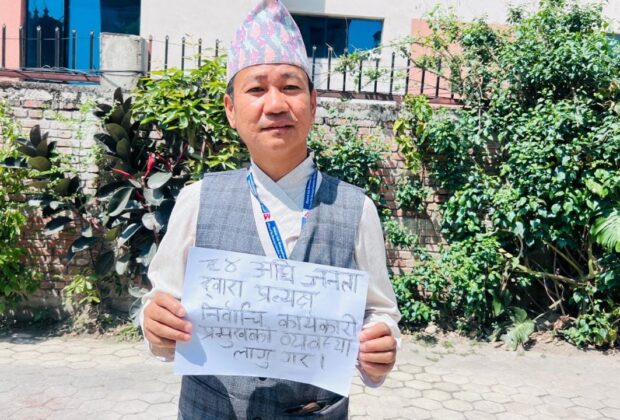 ८४ अघि जनता
द्वारा प्रत्यक्ष
निर्वाचि कार्यकारी
प्रमुखको व्यवस्था
लागु गर।